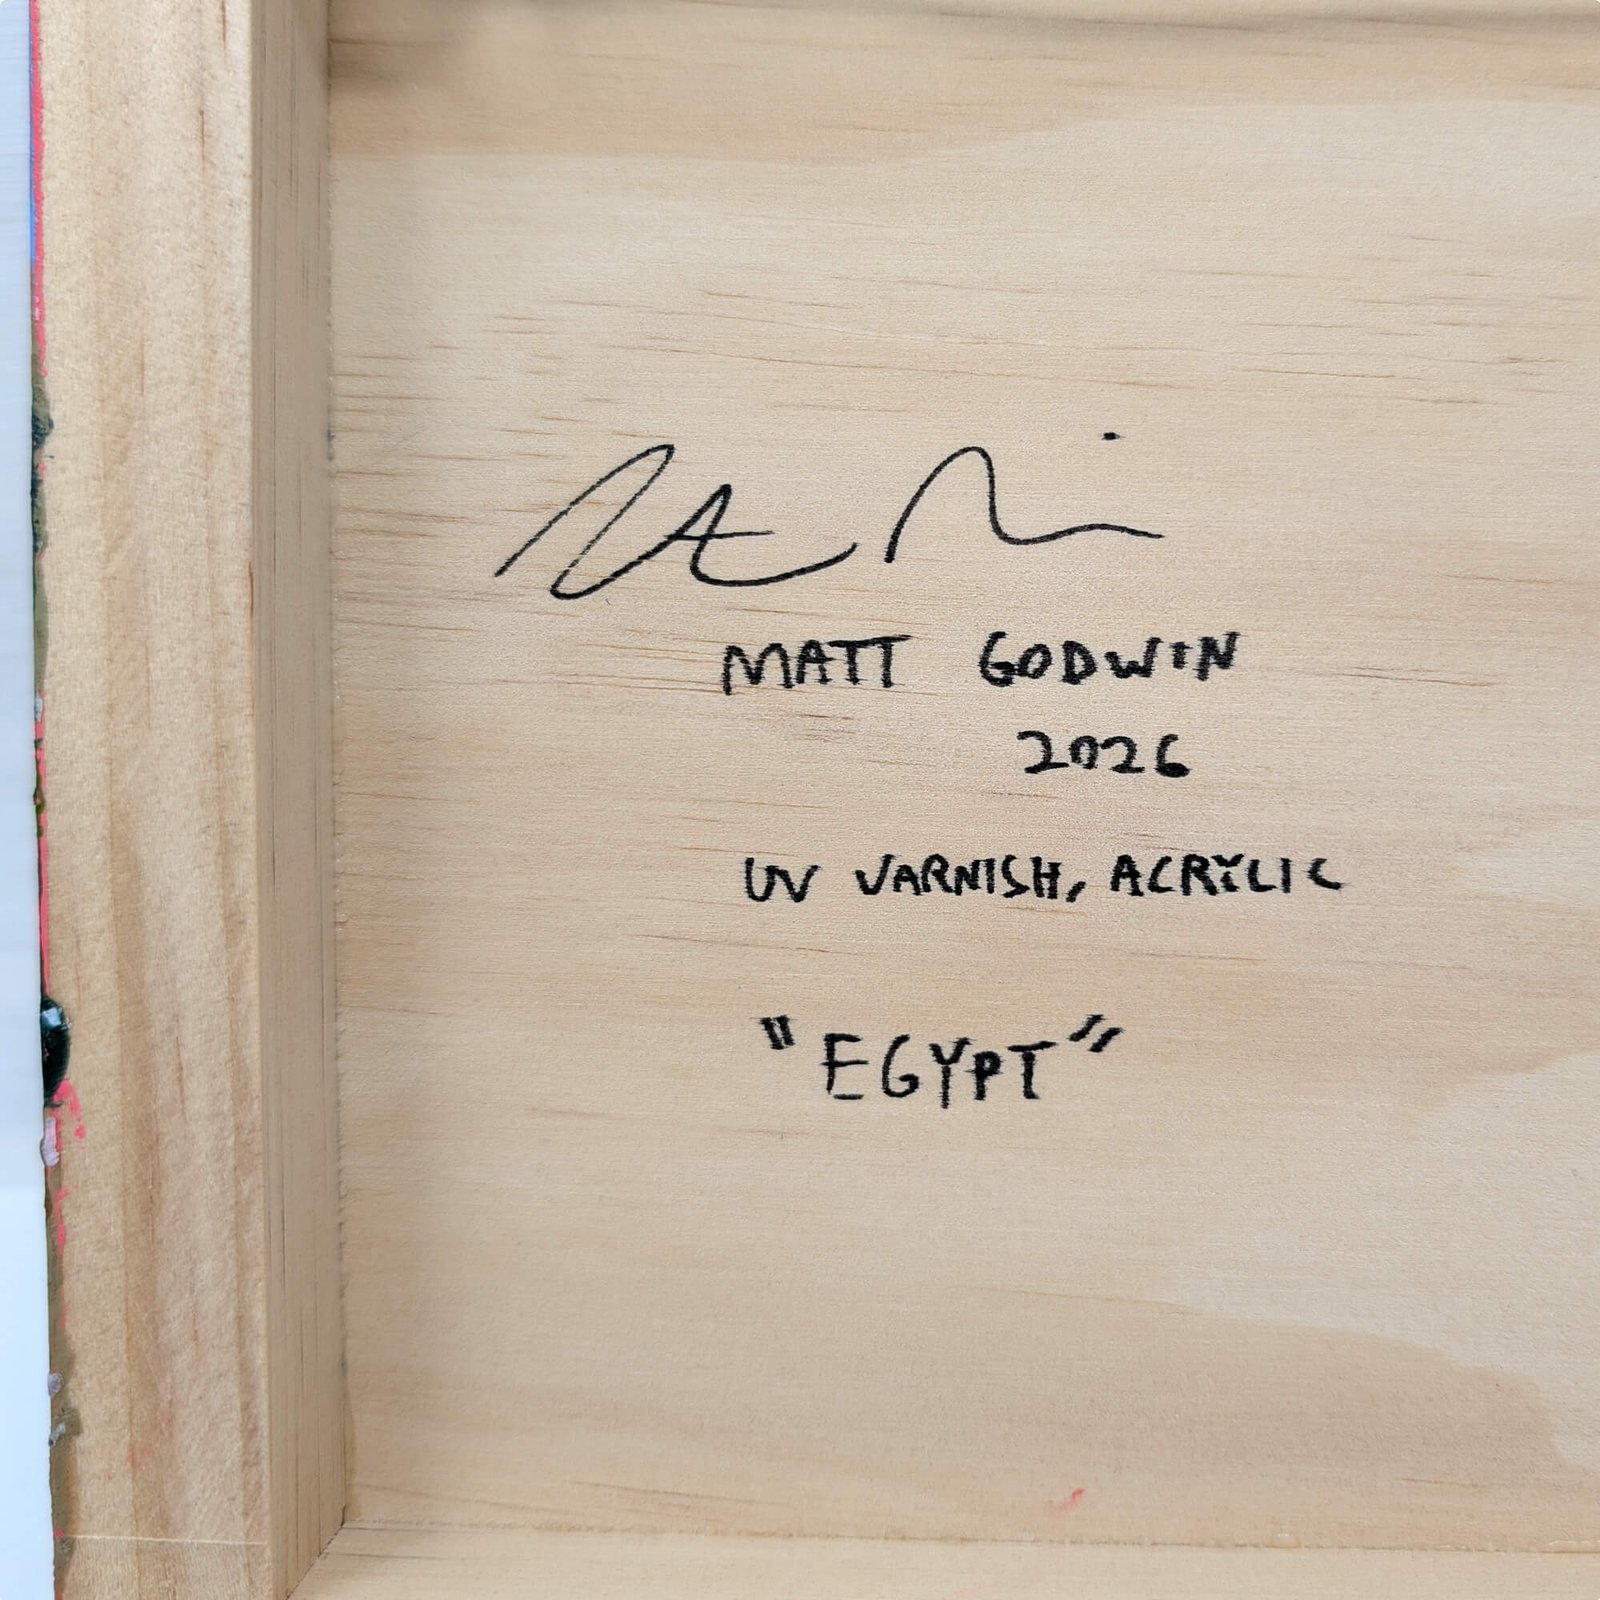 MATT GODWIN
2026
UV VARNISH, ACRYLIC
"EGYPT"